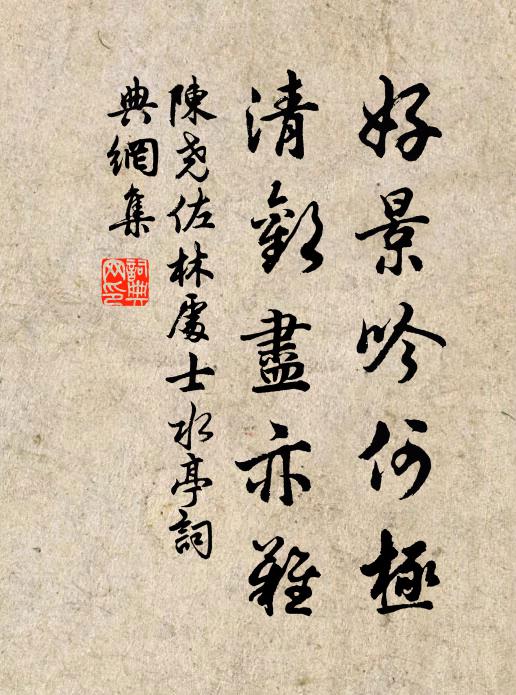 好景吟何極
清歡盡亦難
陳堯佐林處士水亭詞
典網集
詞典網印